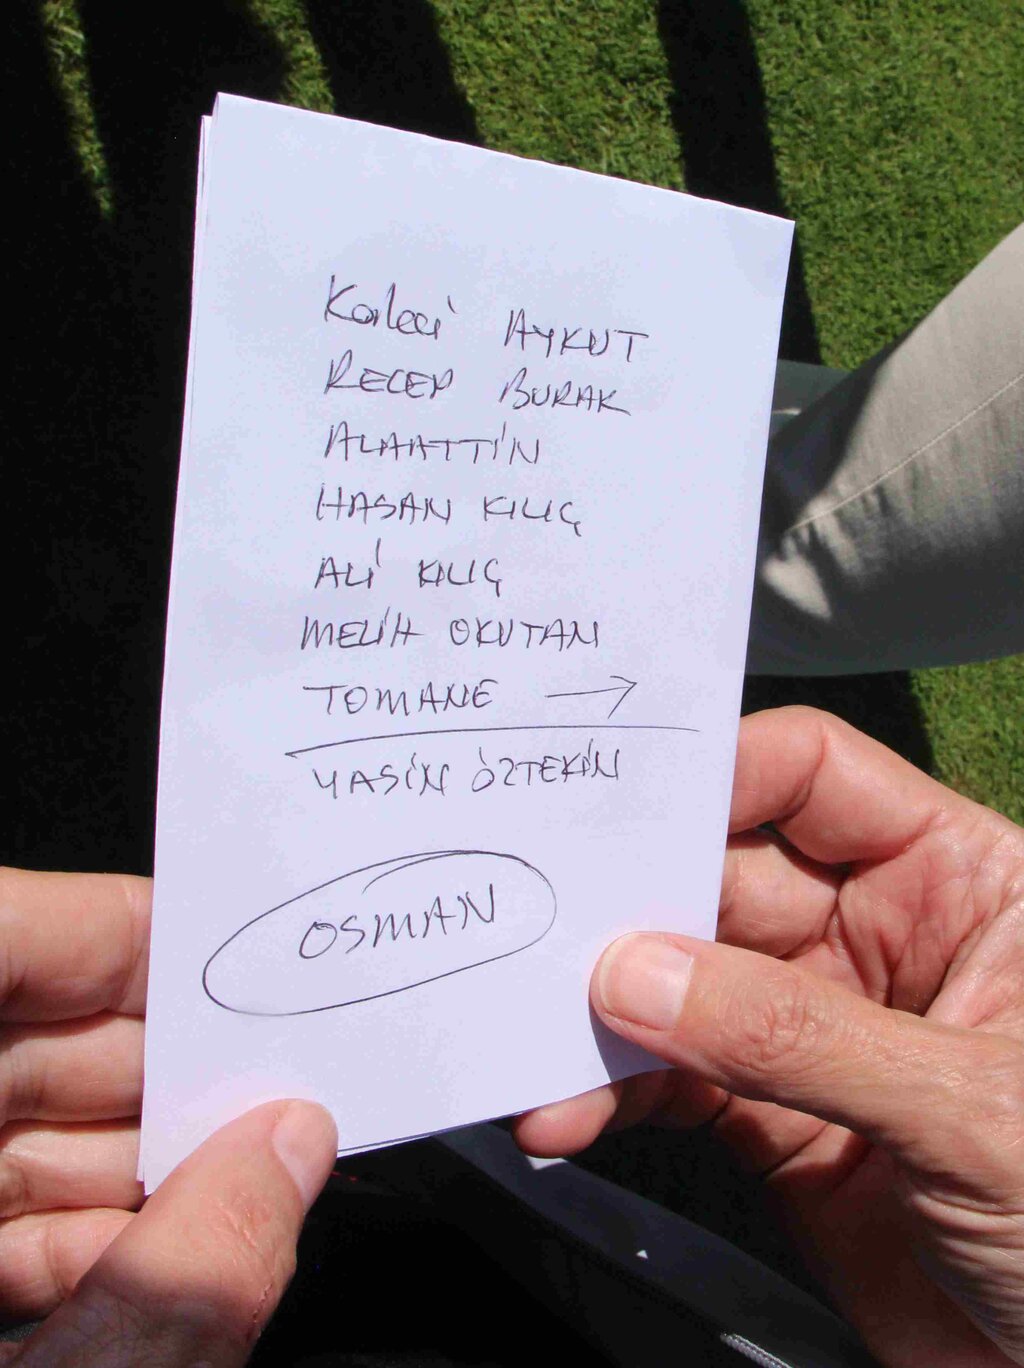 Kaleci AYKUT
RECEP BURAK
ALAATTİN
HASAN KILIÇ
ALİ KILIÇ
MELİH OKUTAN
TOMANE →
YASİN ÖZTEKİN
OSMAN